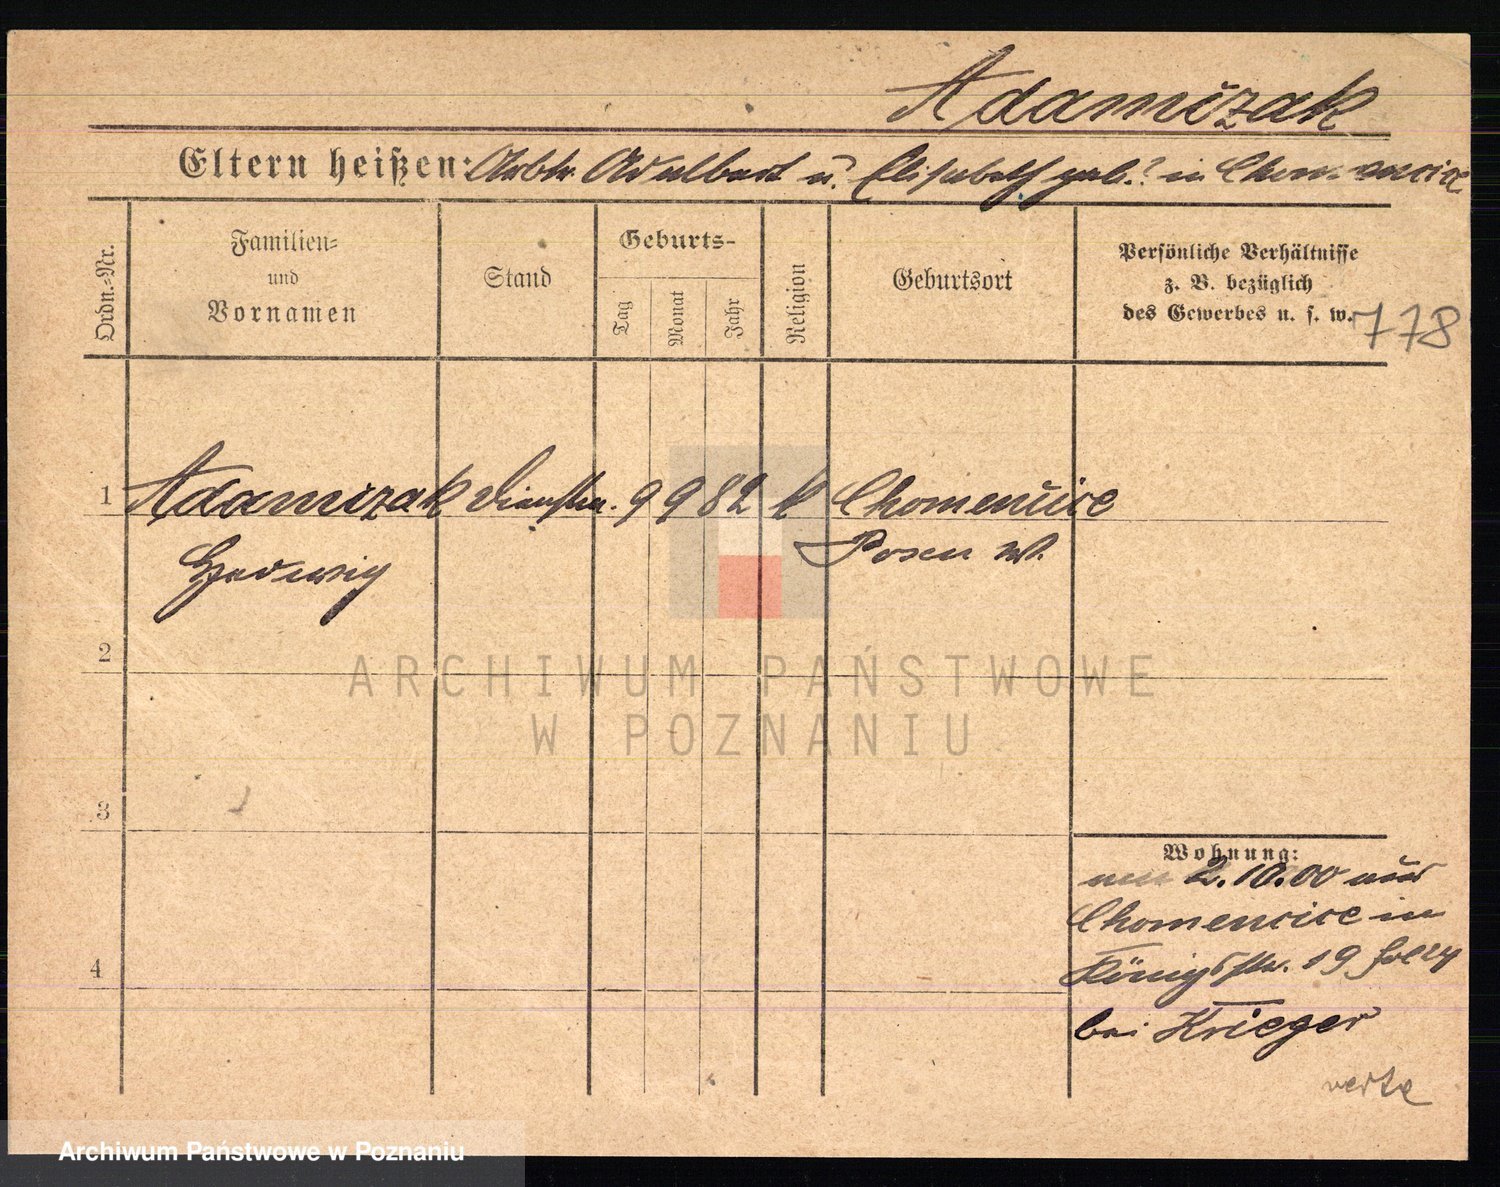 Adamizak
Eltern heißen: Arbtr. Adalbert u. Elisabeth geb. ? in
Ordn.-Nr.
Familien-
und
Vornamen
Stand
Geburts-
Tag
Monat
Jahr
Religion
Geburtsort
Persönliche Verhältnisse
z. B. bezüglich
des Gewerbes u. s. w.
778
1 Adamizak 9 9 82 k Chomencice
Hedwig Posen W.
2
ARCHIWUM PAŃSTWOWE
W POZNANIU
3
Wohnung:
2.10.00 aus
Chomencice in
4
Königstr. 19
bei Krieger
verte
Archiwum Państwowe w Poznaniu